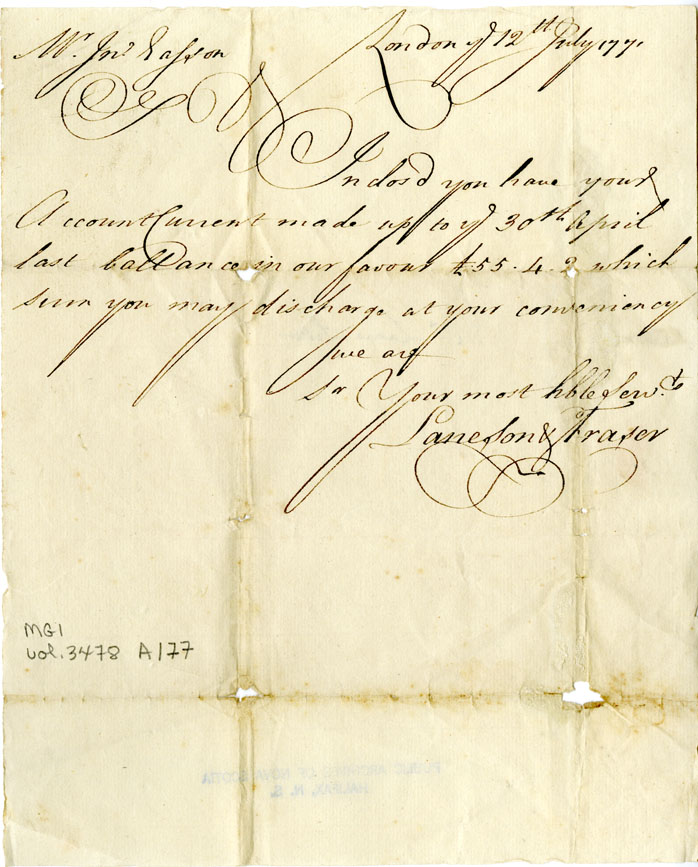 Mr. Jno Easson London ye 12th July 1771
Sr
Inclosd you have your
Account Current made up to ye 30th April
last ballance in our favour £55.4.2 which
sum you may discharge at your conveniency
we are
Sr Your most hble Servts
Lane Son & Fraser
MG1
vol. 3478 A/77
PUBLIC ARCHIVES OF NOVA SCOTIA
HALIFAX, N. S.